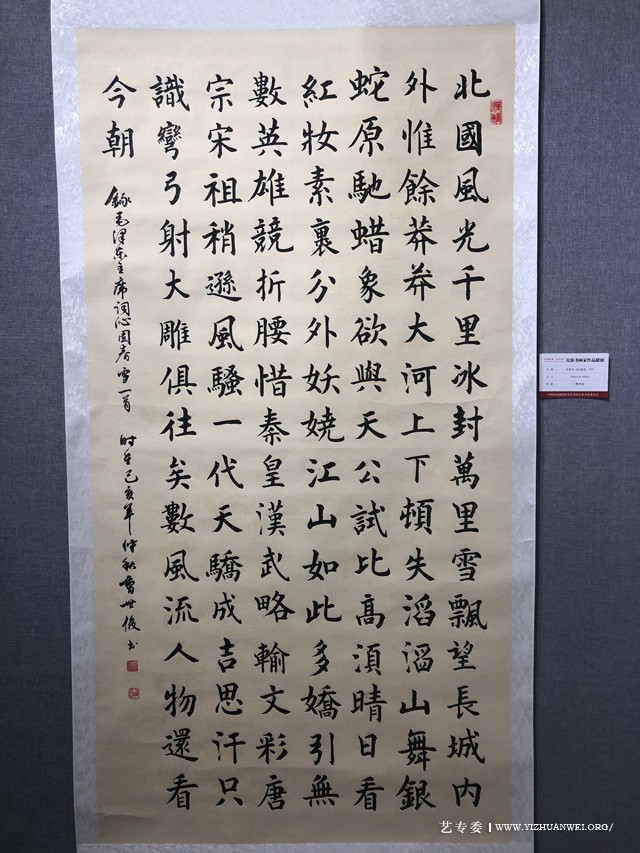 北國風光千里冰封萬里雪飄望長城内
外惟餘莽莽大河上下頓失滔滔山舞銀
蛇原馳蜡象欲與天公試比高須晴日看
紅妝素裹分外妖嬈江山如此多嬌引無
數英雄競折腰惜秦皇漢武略輸文彩唐
宗宋祖稍遜風騷一代天驕成吉思汗只
識彎弓射大雕俱往矣數風流人物還看
今朝
錄毛澤东主席词沁园春雪一首 时年己亥年仲秋曹世俊书
艺专委 | WWW.YIZHUANWEI.ORG/